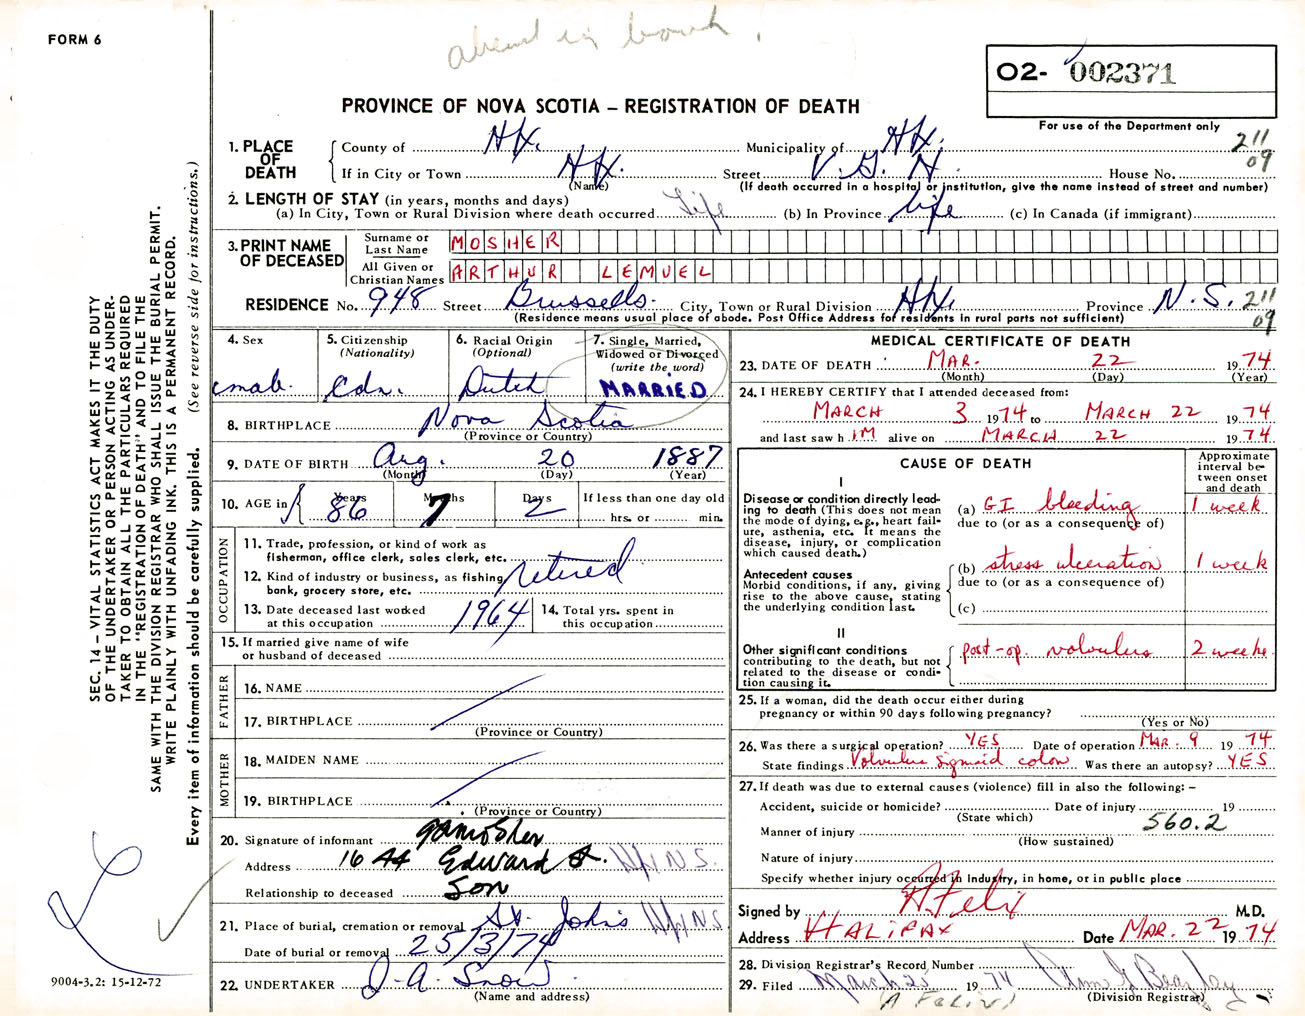 FORM 6
02- 002371
PROVINCE OF NOVA SCOTIA – REGISTRATION OF DEATH
For use of the Department only
211
09
1. PLACE OF DEATH
County of Hx. Municipality of Hx.
If in City or Town Hx. Street V. G. H. House No.
(Name) (If death occurred in a hospital or institution, give the name instead of street and number)
2. LENGTH OF STAY (in years, months and days)
(a) In City, Town or Rural Division where death occurred Life (b) In Province life (c) In Canada (if immigrant)
3. PRINT NAME OF DECEASED
Surname or Last Name MOSHER
All Given or Christian Names ARTHUR LEMUEL
RESIDENCE No. 948 Street Brussells. City, Town or Rural Division Hx. Province N.S. 211
09
(Residence means usual place of abode. Post Office Address for residents in rural parts not sufficient)
4. Sex
5. Citizenship (Nationality) Cdn.
6. Racial Origin (Optional) Dutch
7. Single, Married, Widowed or Divorced (write the word) MARRIED
8. BIRTHPLACE Nova Scotia
(Province or Country)
9. DATE OF BIRTH Aug. 20 1887
(Month) (Day) (Year)
10. AGE in Years 86 Months 7 Days 2 If less than one day old
hrs. or min.
OCCUPATION
11. Trade, profession, or kind of work as fisherman, office clerk, sales clerk, etc.
12. Kind of industry or business, as fishing, bank, grocery store, etc. retired
13. Date deceased last worked at this occupation 1964
14. Total yrs. spent in this occupation
15. If married give name of wife or husband of deceased
FATHER
16. NAME
17. BIRTHPLACE
(Province or Country)
MOTHER
18. MAIDEN NAME
19. BIRTHPLACE
(Province or Country)
20. Signature of informant Mosher
Address 1644 Edward St. Hx N.S.
Relationship to deceased Son
21. Place of burial, cremation or removal St. John's Hx N.S
Date of burial or removal 25/3/74
22. UNDERTAKER J. A. Snow.
(Name and address)
MEDICAL CERTIFICATE OF DEATH
23. DATE OF DEATH MAR. 22 1974
(Month) (Day) (Year)
24. I HEREBY CERTIFY that I attended deceased from:
MARCH 3 1974 to MARCH 22 1974
and last saw h IM alive on MARCH 22 1974
CAUSE OF DEATH
Approximate interval between onset and death
I
Disease or condition directly leading to death (This does not mean the mode of dying, e.g., heart failure, asthenia, etc. It means the disease, injury, or complication which caused death.)
(a) GI bleeding 1 week
due to (or as a consequence of)
Antecedent causes
Morbid conditions, if any, giving rise to the above cause, stating the underlying condition last.
(b) stress ulceration 1 week
due to (or as a consequence of)
(c)
II
Other significant conditions contributing to the death, but not related to the disease or condition causing it.
post-op. volvulus 2 weeks
25. If a woman, did the death occur either during pregnancy or within 90 days following pregnancy?
(Yes or No)
26. Was there a surgical operation? YES Date of operation MAR. 9 1974
State findings Volvulus sigmoid colon Was there an autopsy? YES
27. If death was due to external causes (violence) fill in also the following: –
Accident, suicide or homicide? Date of injury 19
(State which)
560.2
Manner of injury
(How sustained)
Nature of injury
Specify whether injury occurred in Industry, in home, or in public place
Signed by A Felix M.D.
Address HALIFAX Date MAR. 22 1974
28. Division Registrar's Record Number
29. Filed March 25 1974
(Division Registrar)
SEC. 14 – VITAL STATISTICS ACT MAKES IT THE DUTY
OF THE UNDERTAKER OR PERSON ACTING AS UNDER-
TAKER TO OBTAIN ALL THE PARTICULARS REQUIRED
IN THE "REGISTRATION OF DEATH" AND TO FILE THE
SAME WITH THE DIVISION REGISTRAR WHO SHALL ISSUE THE BURIAL PERMIT.
WRITE PLAINLY WITH UNFADING INK. THIS IS A PERMANENT RECORD.
Every item of information should be carefully supplied. (See reverse side for instructions.)
9004-3.2: 15-12-72